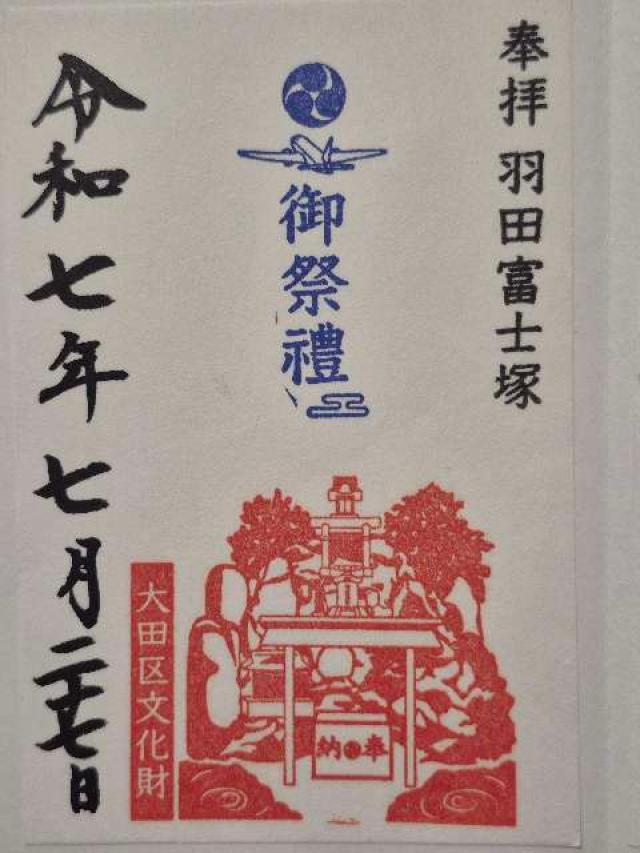 奉拝 羽田富士塚
御祭禮
令和七年七月二十七日
大田区文化財
奉納